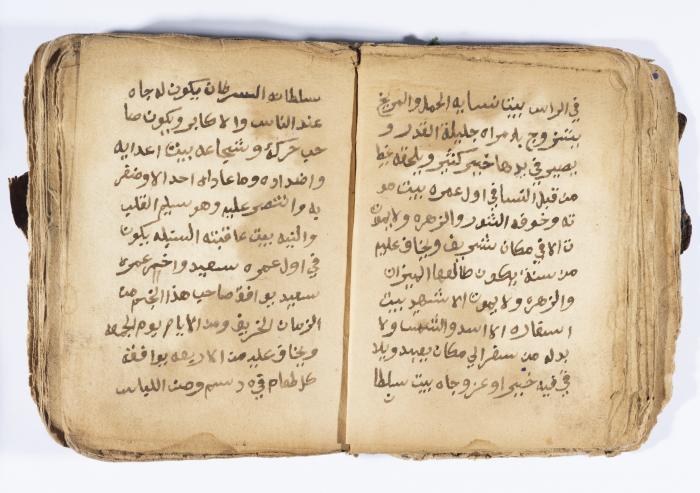 في الراس بيت نسايه الحمل والمريخ
يتزوج بلا مراه جليلة القدر و
يصير في يدها خير كثير ويلحقه غيظ
من قبل النسا في اول عمره بيت مو
ته وخوفه الثور والزهره ولا يموت
الا في مكان شريف ويخاف عليه
من سنة يكون طالعها الميزان
والزهره ولا يموت الا شهيد بيت
اسفاره الاسد والشمس ولا
بد له من سفر الي مكان بعيد ويلا
في فيه خير او عز وجاه بيت سلطا
ن
سلطانه السرطان يكون له جاه
عند الناس والاكابر ويكون صا
حب حركة وشجاعه بيت اعدايه
واضداده وما عاداه احد الا وضفر
به وانتصر عليه وهو سليم القلب
والنيه بيت عاقبته السنبله يكون
في اول عمره سعيد واخر عمره
سعيد يوافق صاحب هذا النجم من
الزمان الخريف ومن الايام يوم الجمعه
ويخاف عليه من الاربعه يوافقه
كل طعام فيه دسم ومن اللباس